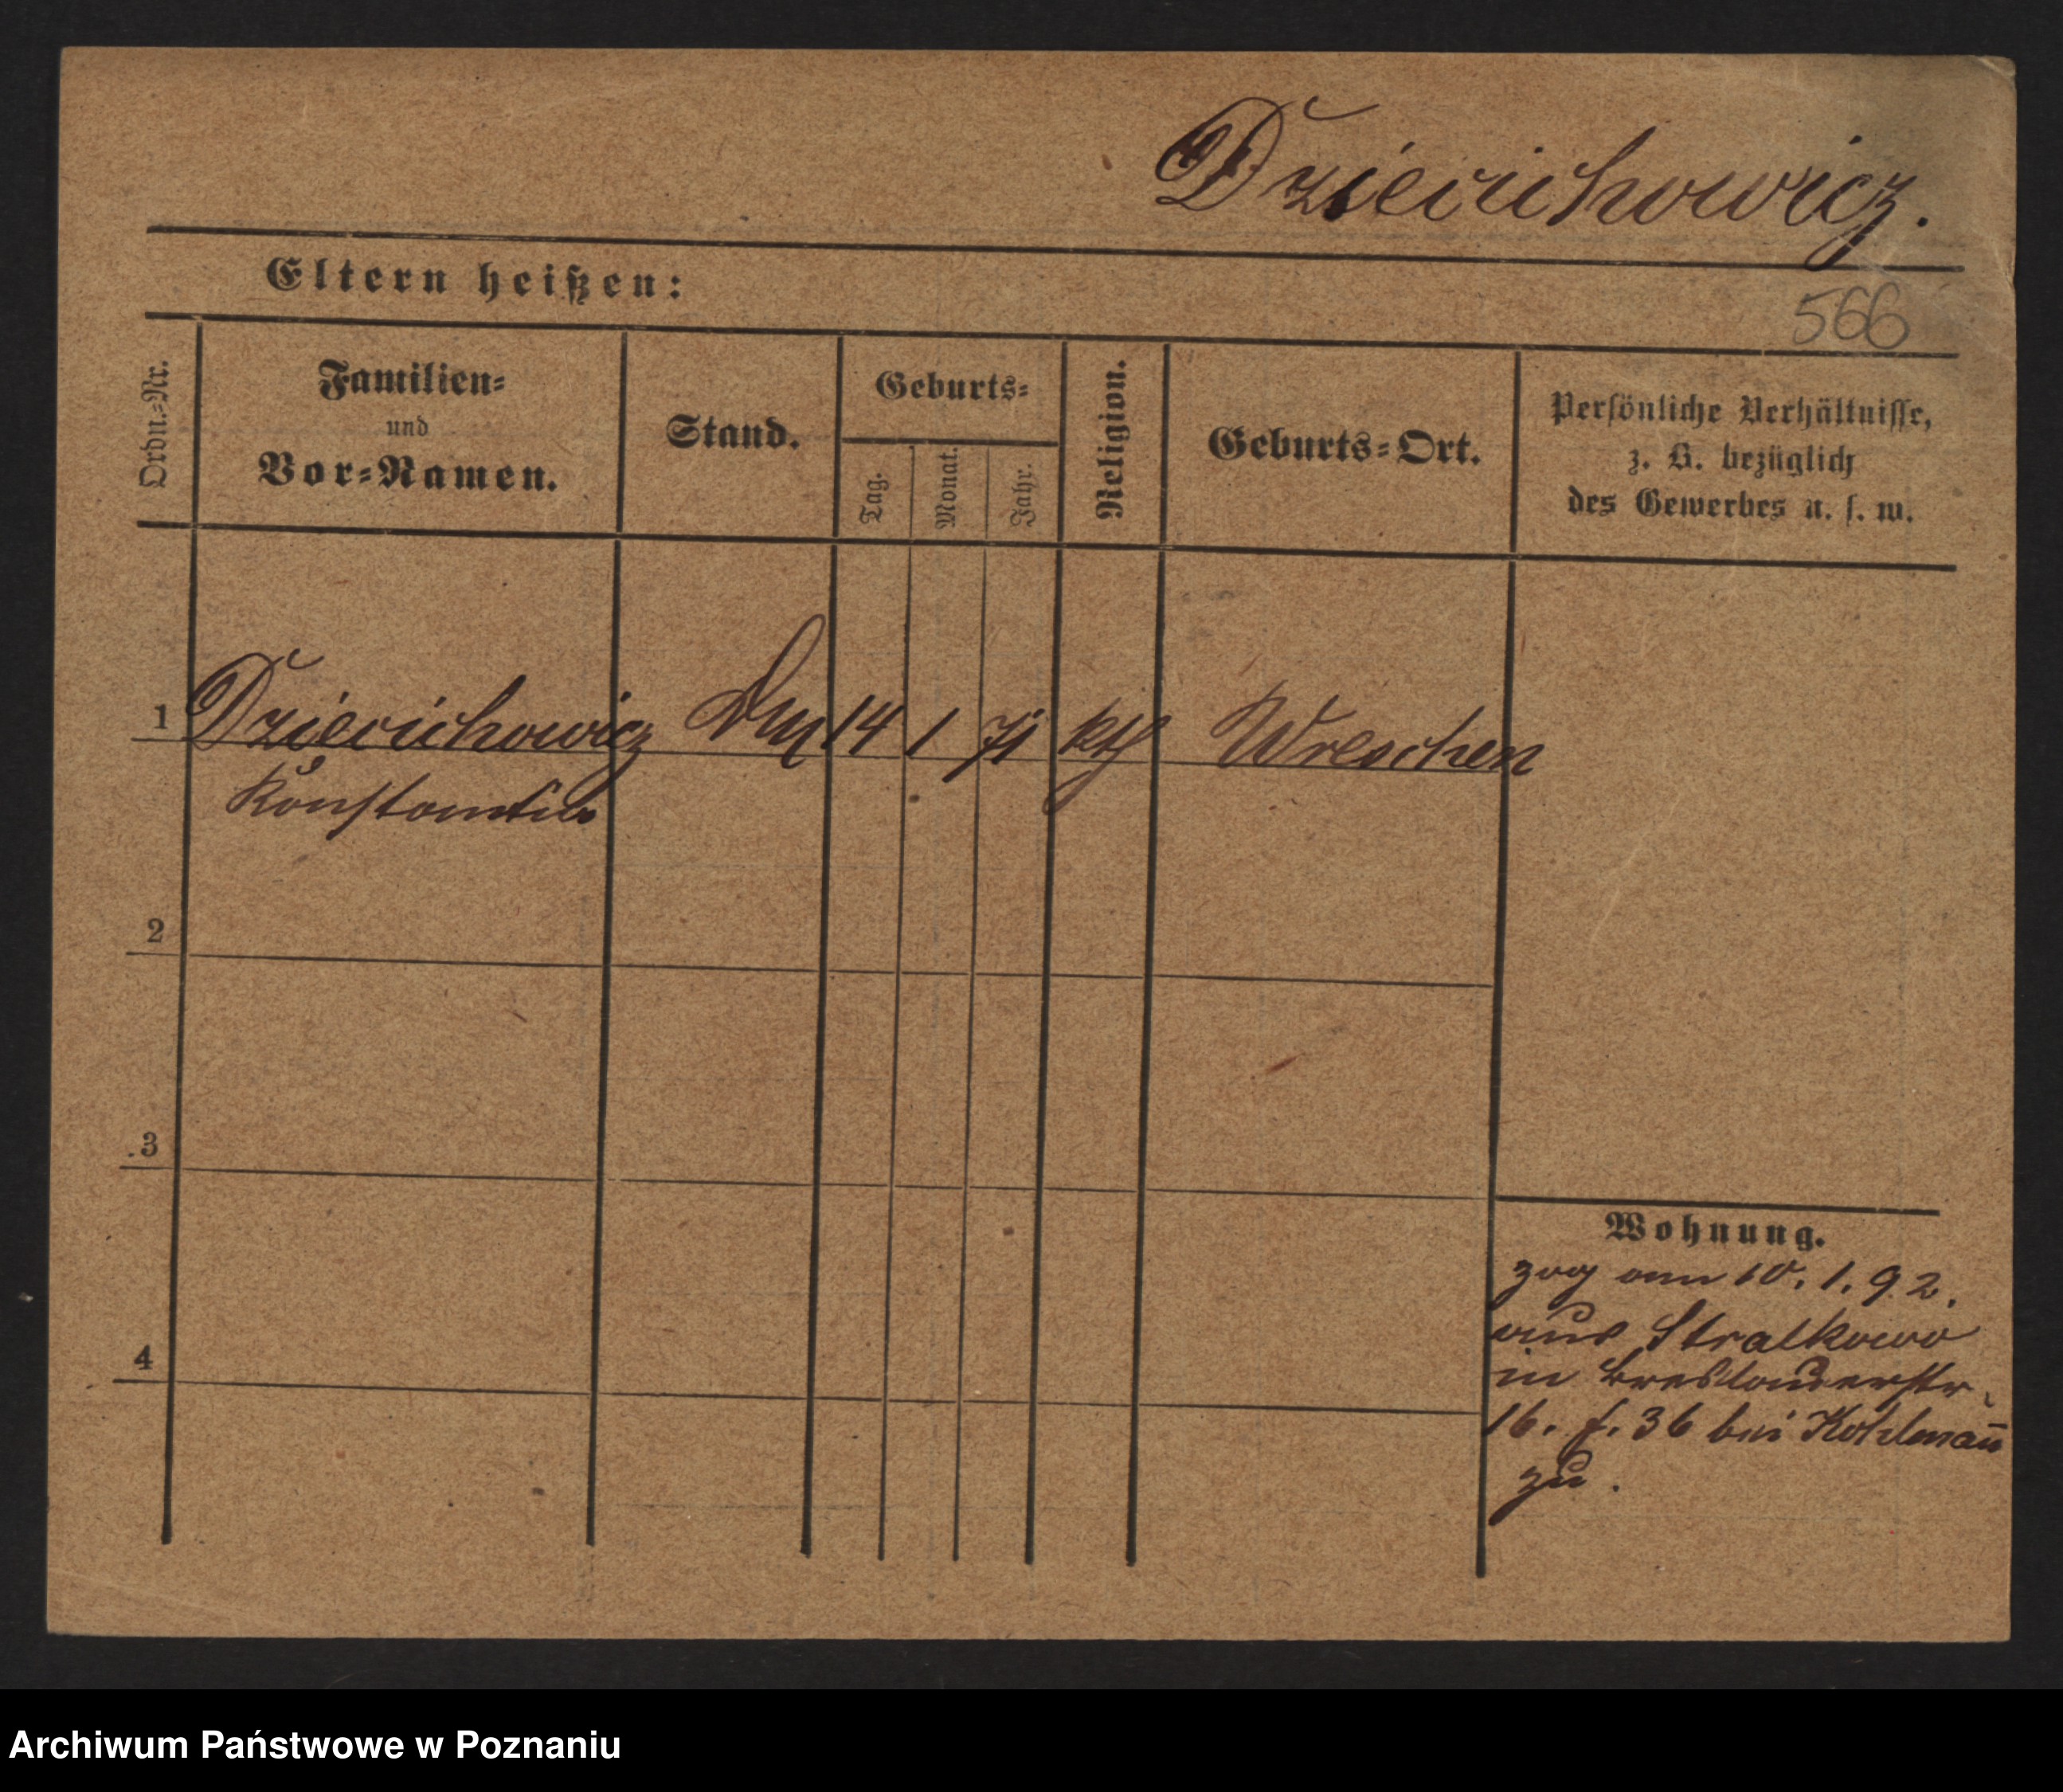 Dzierichowicz.
Eltern heißen:
566
Ordn.-Nr.
Familien-
und
Vor-Namen.
Stand.
Geburts-
Tag.
Monat.
Jahr.
Religion.
Geburts-Ort.
Persönliche Verhältnisse,
z. B. bezüglich
des Gewerbes u. s. w.
1 Dzierichowicz 14 1 71 kth Wreschen
Konstantin
2
3
4
Wohnung.
zog am 10. 1. 92.
aus Stralkowo
in Breslauerstr.
16. f. 36 bei Kohlmañ
zu.
Archiwum Państwowe w Poznaniu